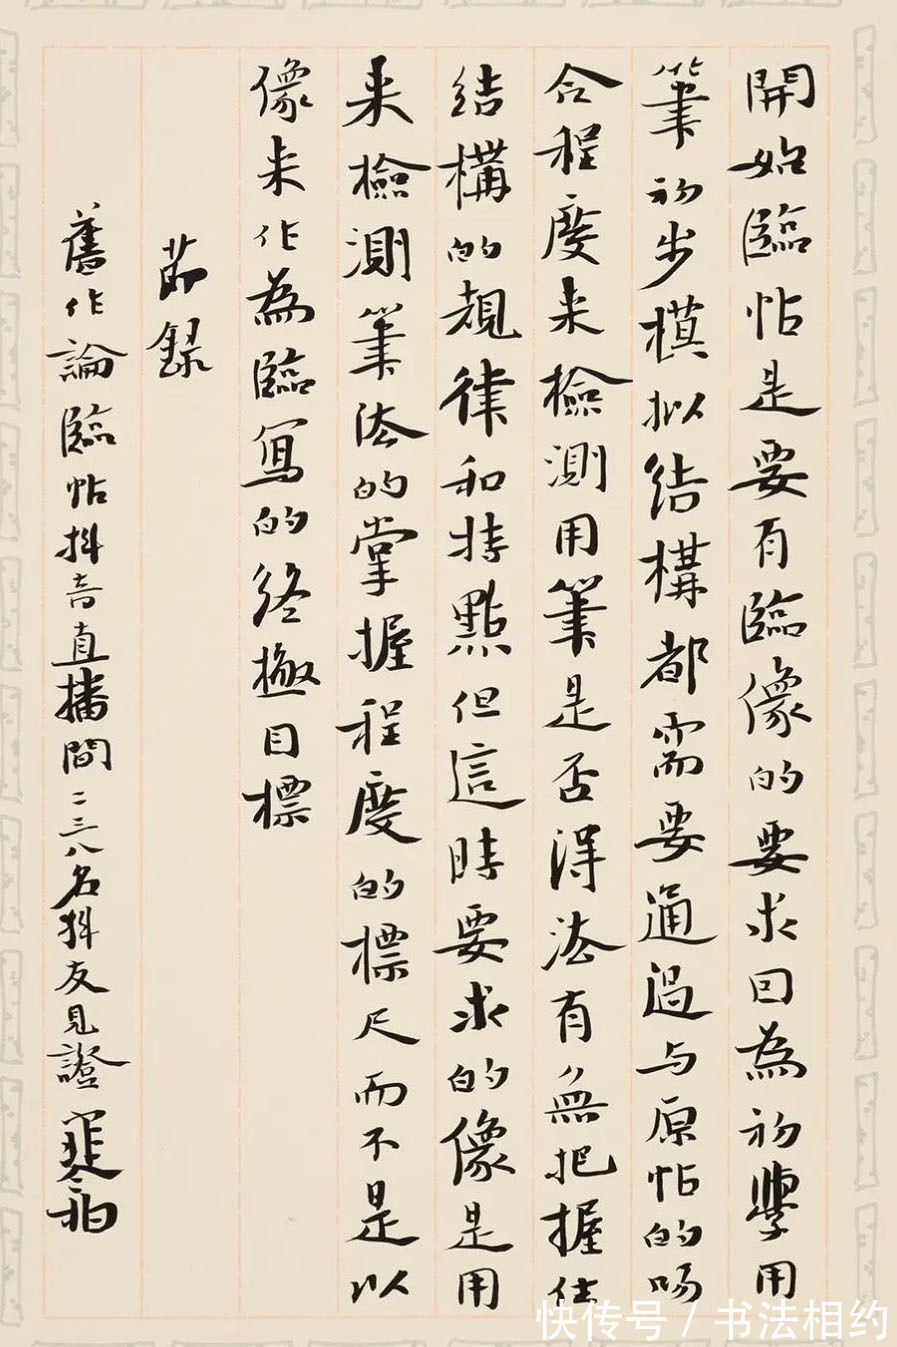 開始臨帖是要有臨像的要求因為初學用
筆初步模拟结構都需要通過与原帖的吻
合程度来檢測用筆是否得法有無把握住
结構的規律和特點但這時要求的像是用
来檢測筆法的掌握程度的標尺而不是以
像来作為臨寫的終極目標
節録
舊作論臨帖抖音直播間二三八名抖友見證
快传号/书法相约